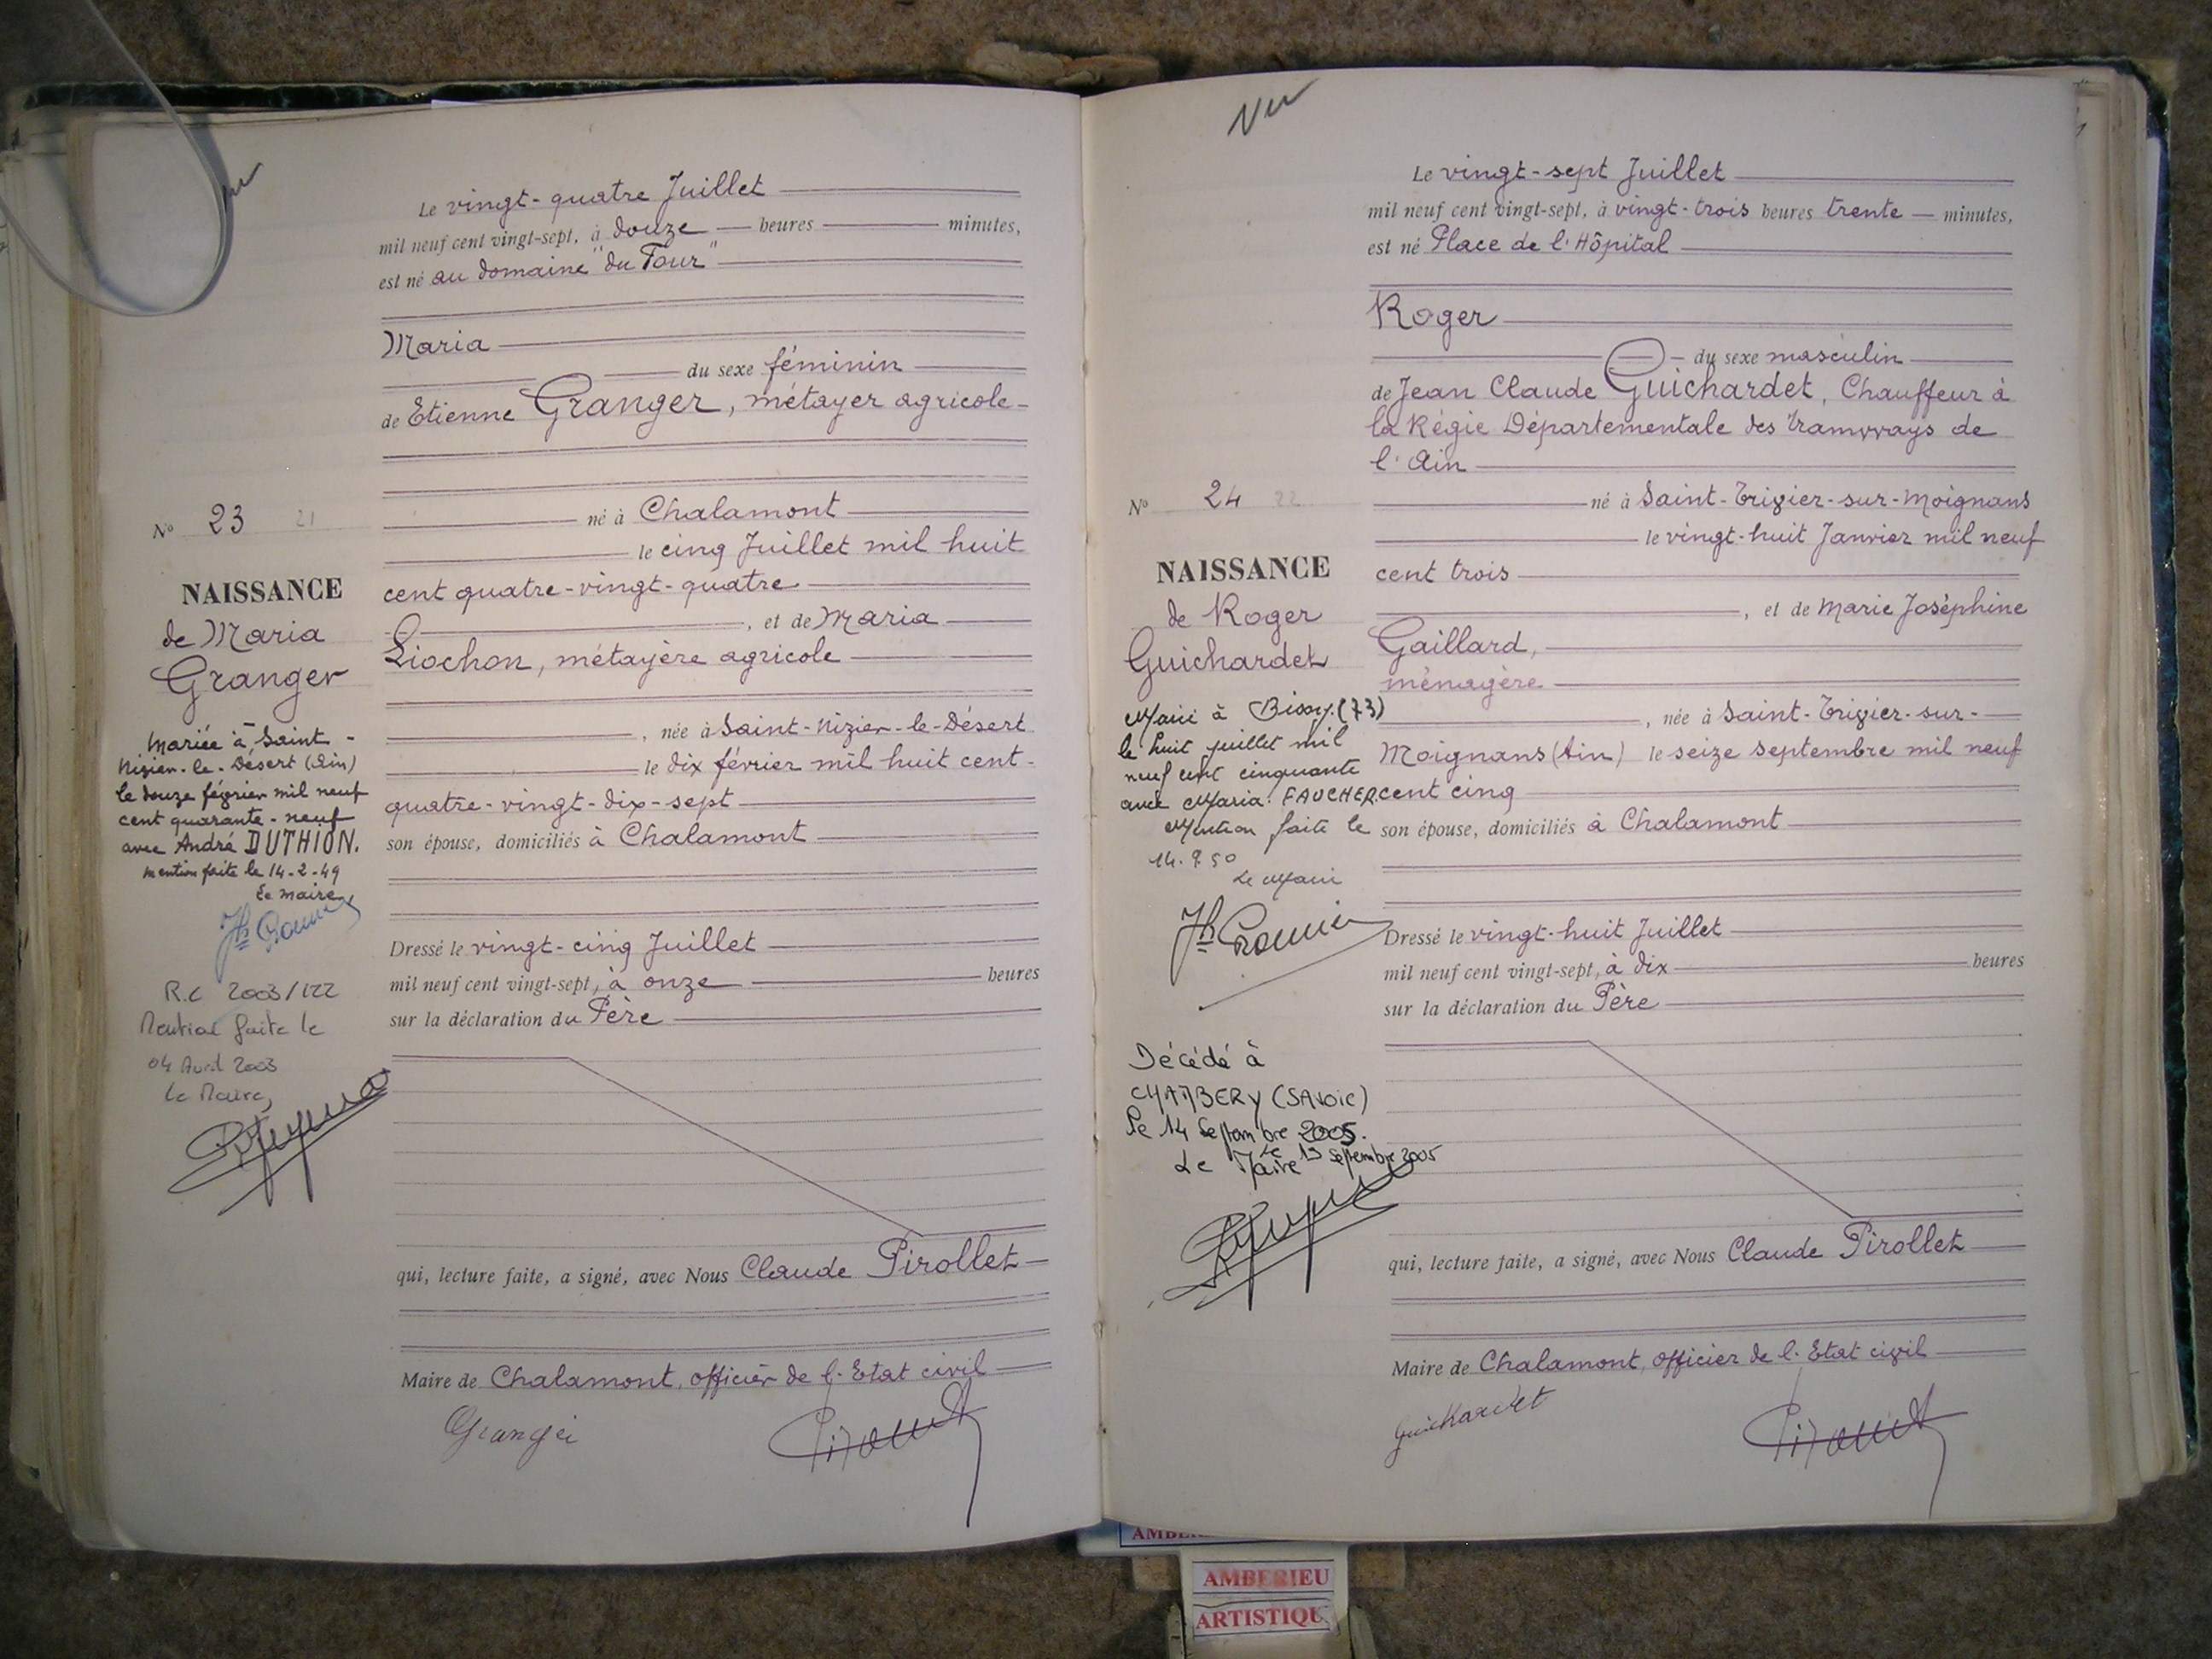 Le vingt-quatre Juillet
mil neuf cent vingt-sept, à douze heures minutes,
est né au domaine "du Four"
Maria
du sexe féminin
de Etienne Granger, métayer agricole
né à Chalamont
N° 23 21
le cinq Juillet mil huit
cent quatre-vingt-quatre
NAISSANCE
de Maria
Granger
, et de Maria
Liochon, métayère agricole
, née à Saint-Nizier-le-Désert
le dix février mil huit cent
quatre-vingt-dix-sept
son épouse, domiciliés à Chalamont
Mariée à Saint-
Nizier-le-Désert (Ain)
le douze février mil neuf
cent quarante-neuf
avec André DUTHION.
mention faite le 14-2-49
Le maire,
Dressé le vingt-cinq Juillet
mil neuf cent vingt-sept, à onze heures
sur la déclaration du Père
R.C 2003/122
Mention faite le
04 Avril 2003
Le Maire,
qui, lecture faite, a signé, avec Nous Claude Pirollet
Maire de Chalamont, officier de l'Etat civil
Granger
Vu
Le vingt-sept Juillet
mil neuf cent vingt-sept, à vingt-trois heures trente minutes,
est né Place de l'Hôpital
Roger
du sexe masculin
de Jean Claude Guichardet, Chauffeur à
la Régie Départementale des Tramways de
l'Ain
N° 24 22
né à Saint-Trivier-sur-Moignans
le vingt-huit Janvier mil neuf
cent trois
NAISSANCE
de Roger
Guichardet
, et de Marie Joséphine
Gaillard,
ménagère
, née à Saint-Trivier-sur-
Moignans (Ain) le seize septembre mil neuf
cent cinq
son épouse, domiciliés à Chalamont
Marié à Bissy (73)
le huit juillet mil
neuf cent cinquante
avec Maria FAUCHER.
Mention faite le
Le Maire
Dressé le vingt-huit Juillet
mil neuf cent vingt-sept, à dix heures
sur la déclaration du Père
Décédé à
CHAMBERY (SAVOIE)
le 14 Septembre 2005.
Le 19 Septembre 2005
Le Maire
qui, lecture faite, a signé, avec Nous Claude Pirollet
Maire de Chalamont, officier de l'Etat civil
Guichardet
AMBERIEU
ARTISTIQU